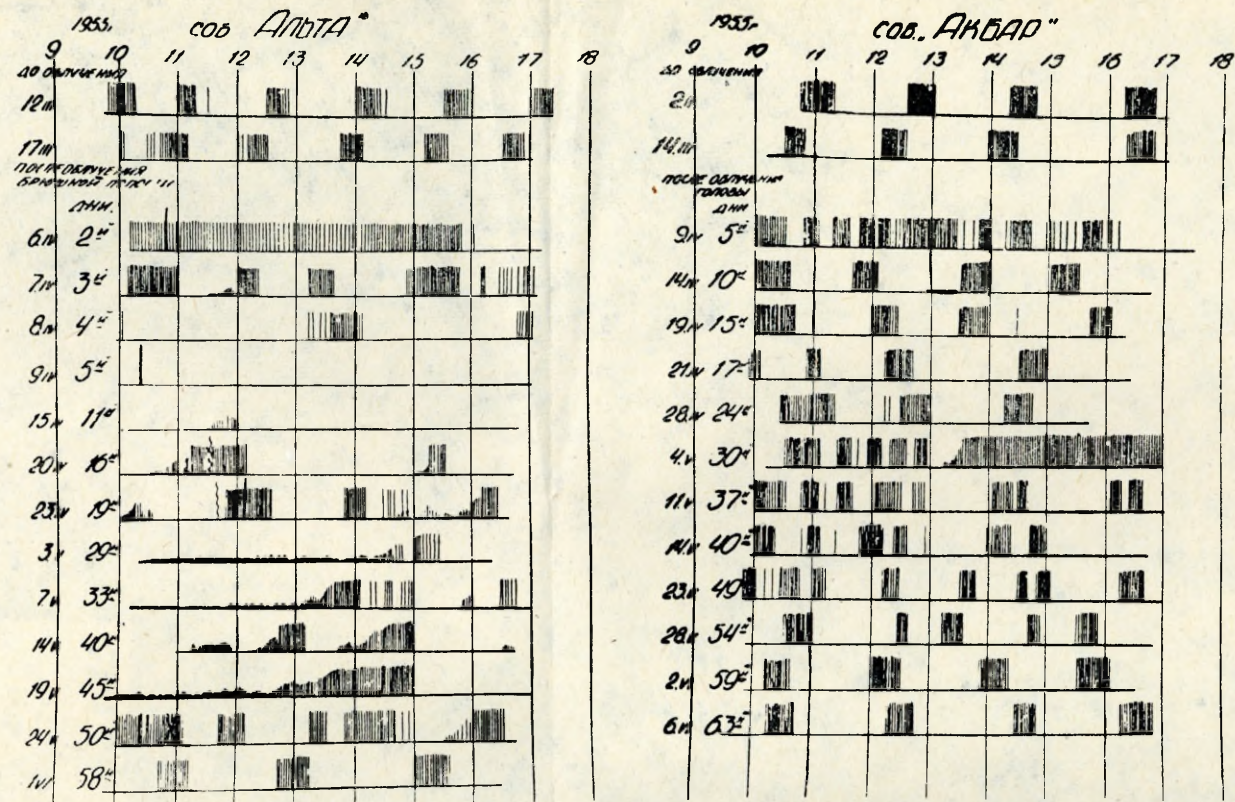 1955г. соб „Альта"
9 10 11 12 13 14 15 16 17 18
до облучения
12 III
17 III
после облучения
брюшной полости
дни.
6.IV 2й
7.IV 3й
8.IV 4й
9.IV 5й
15.IV 11й
20.IV 16й
23.IV 19й
3.V 29й
7.V 33й
14.V 40й
19.V 45й
24.V 50й
1.VI 58й
1955г соб. „Акбар"
9 10 11 12 13 14 15 16 17 18
до облучения
2.III
14.III
после облучения
головы
дни
9.IV 5й
14.IV 10й
19.IV 15й
21.IV 17й
28.IV 24й
4.V 30й
11.V 37й
14.V 40й
23.V 49й
28.V 54й
2.VI 59й
6.VI 63й